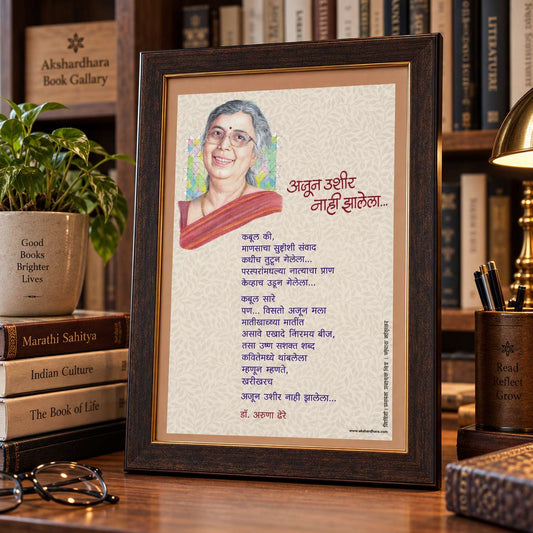 Akshardhara
Book Gallary
LITERATURE
Good
Books
Brighter
Lives
Marathi Sahitya
Indian Culture
The Book of Life
अजून उशीर
नाही झालेला...
कबूल की,
माणसाचा सृष्टीशी संवाद
कधीच तुटून गेलेला...
परस्परांमधल्या नात्याचा प्राण
केव्हाच उडून गेलेला...
कबूल सारे
पण... विसतो अजून मला
मातीखालच्या मातीत
असावे एखादे निरामय बीज,
तसा उष्ण सशक्त शब्द
कवितेमध्ये थांबलेला
म्हणून म्हणते,
खरीखरच
अजून उशीर नाही झालेला...
डॉ. अरुणा ढेरे
www.akshardhara.com
Read
Reflect
Grow